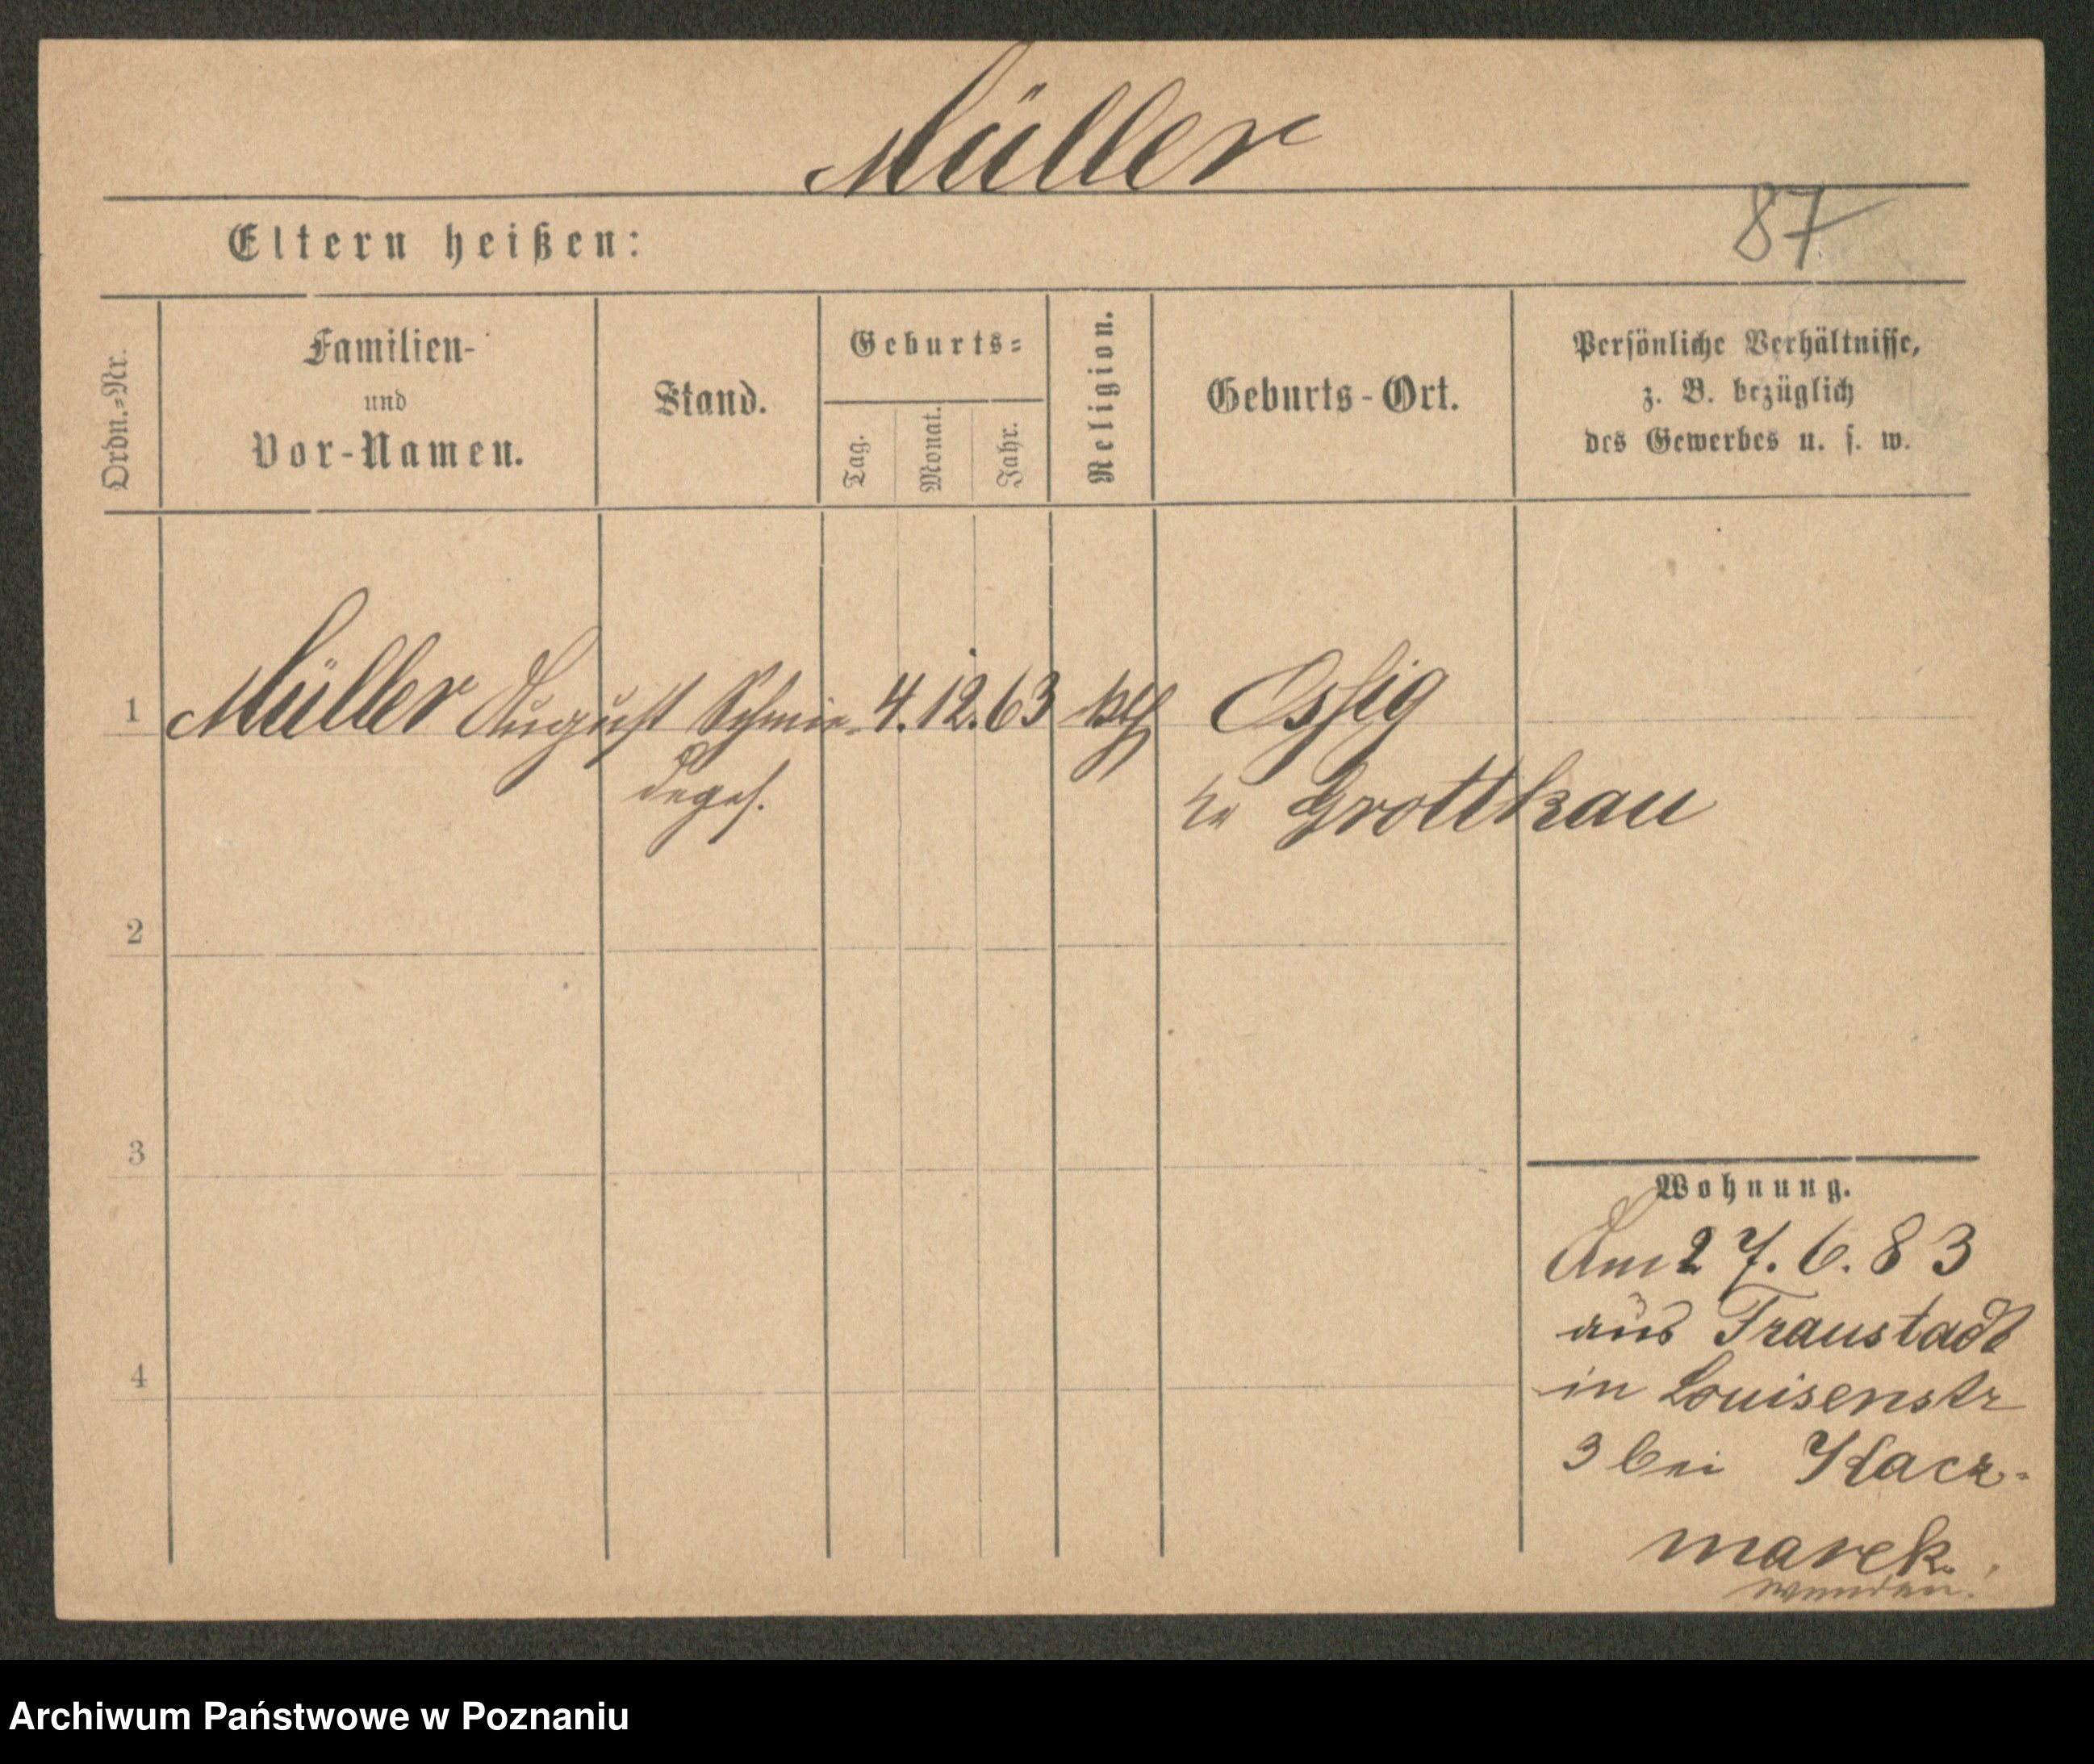 Müller
87
Eltern heißen:
Ordn.=Nr.
Familien-
und
Vor-Namen.
Stand.
Geburts=
Tag.
Monat.
Jahr.
Religion.
Geburts-Ort.
Persönliche Verhältnisse,
z. B. bezüglich
des Gewerbes u. s. w.
1 Müller August Schmie- 4. 12. 63 kth Ossig
degs. Kr Grottkau
2
3
4
Wohnung.
Am 27. 6. 83
aus Fraustadt
in Louisenstr
3 bei Kacz-
marek.
wenden!
Archiwum Państwowe w Poznaniu